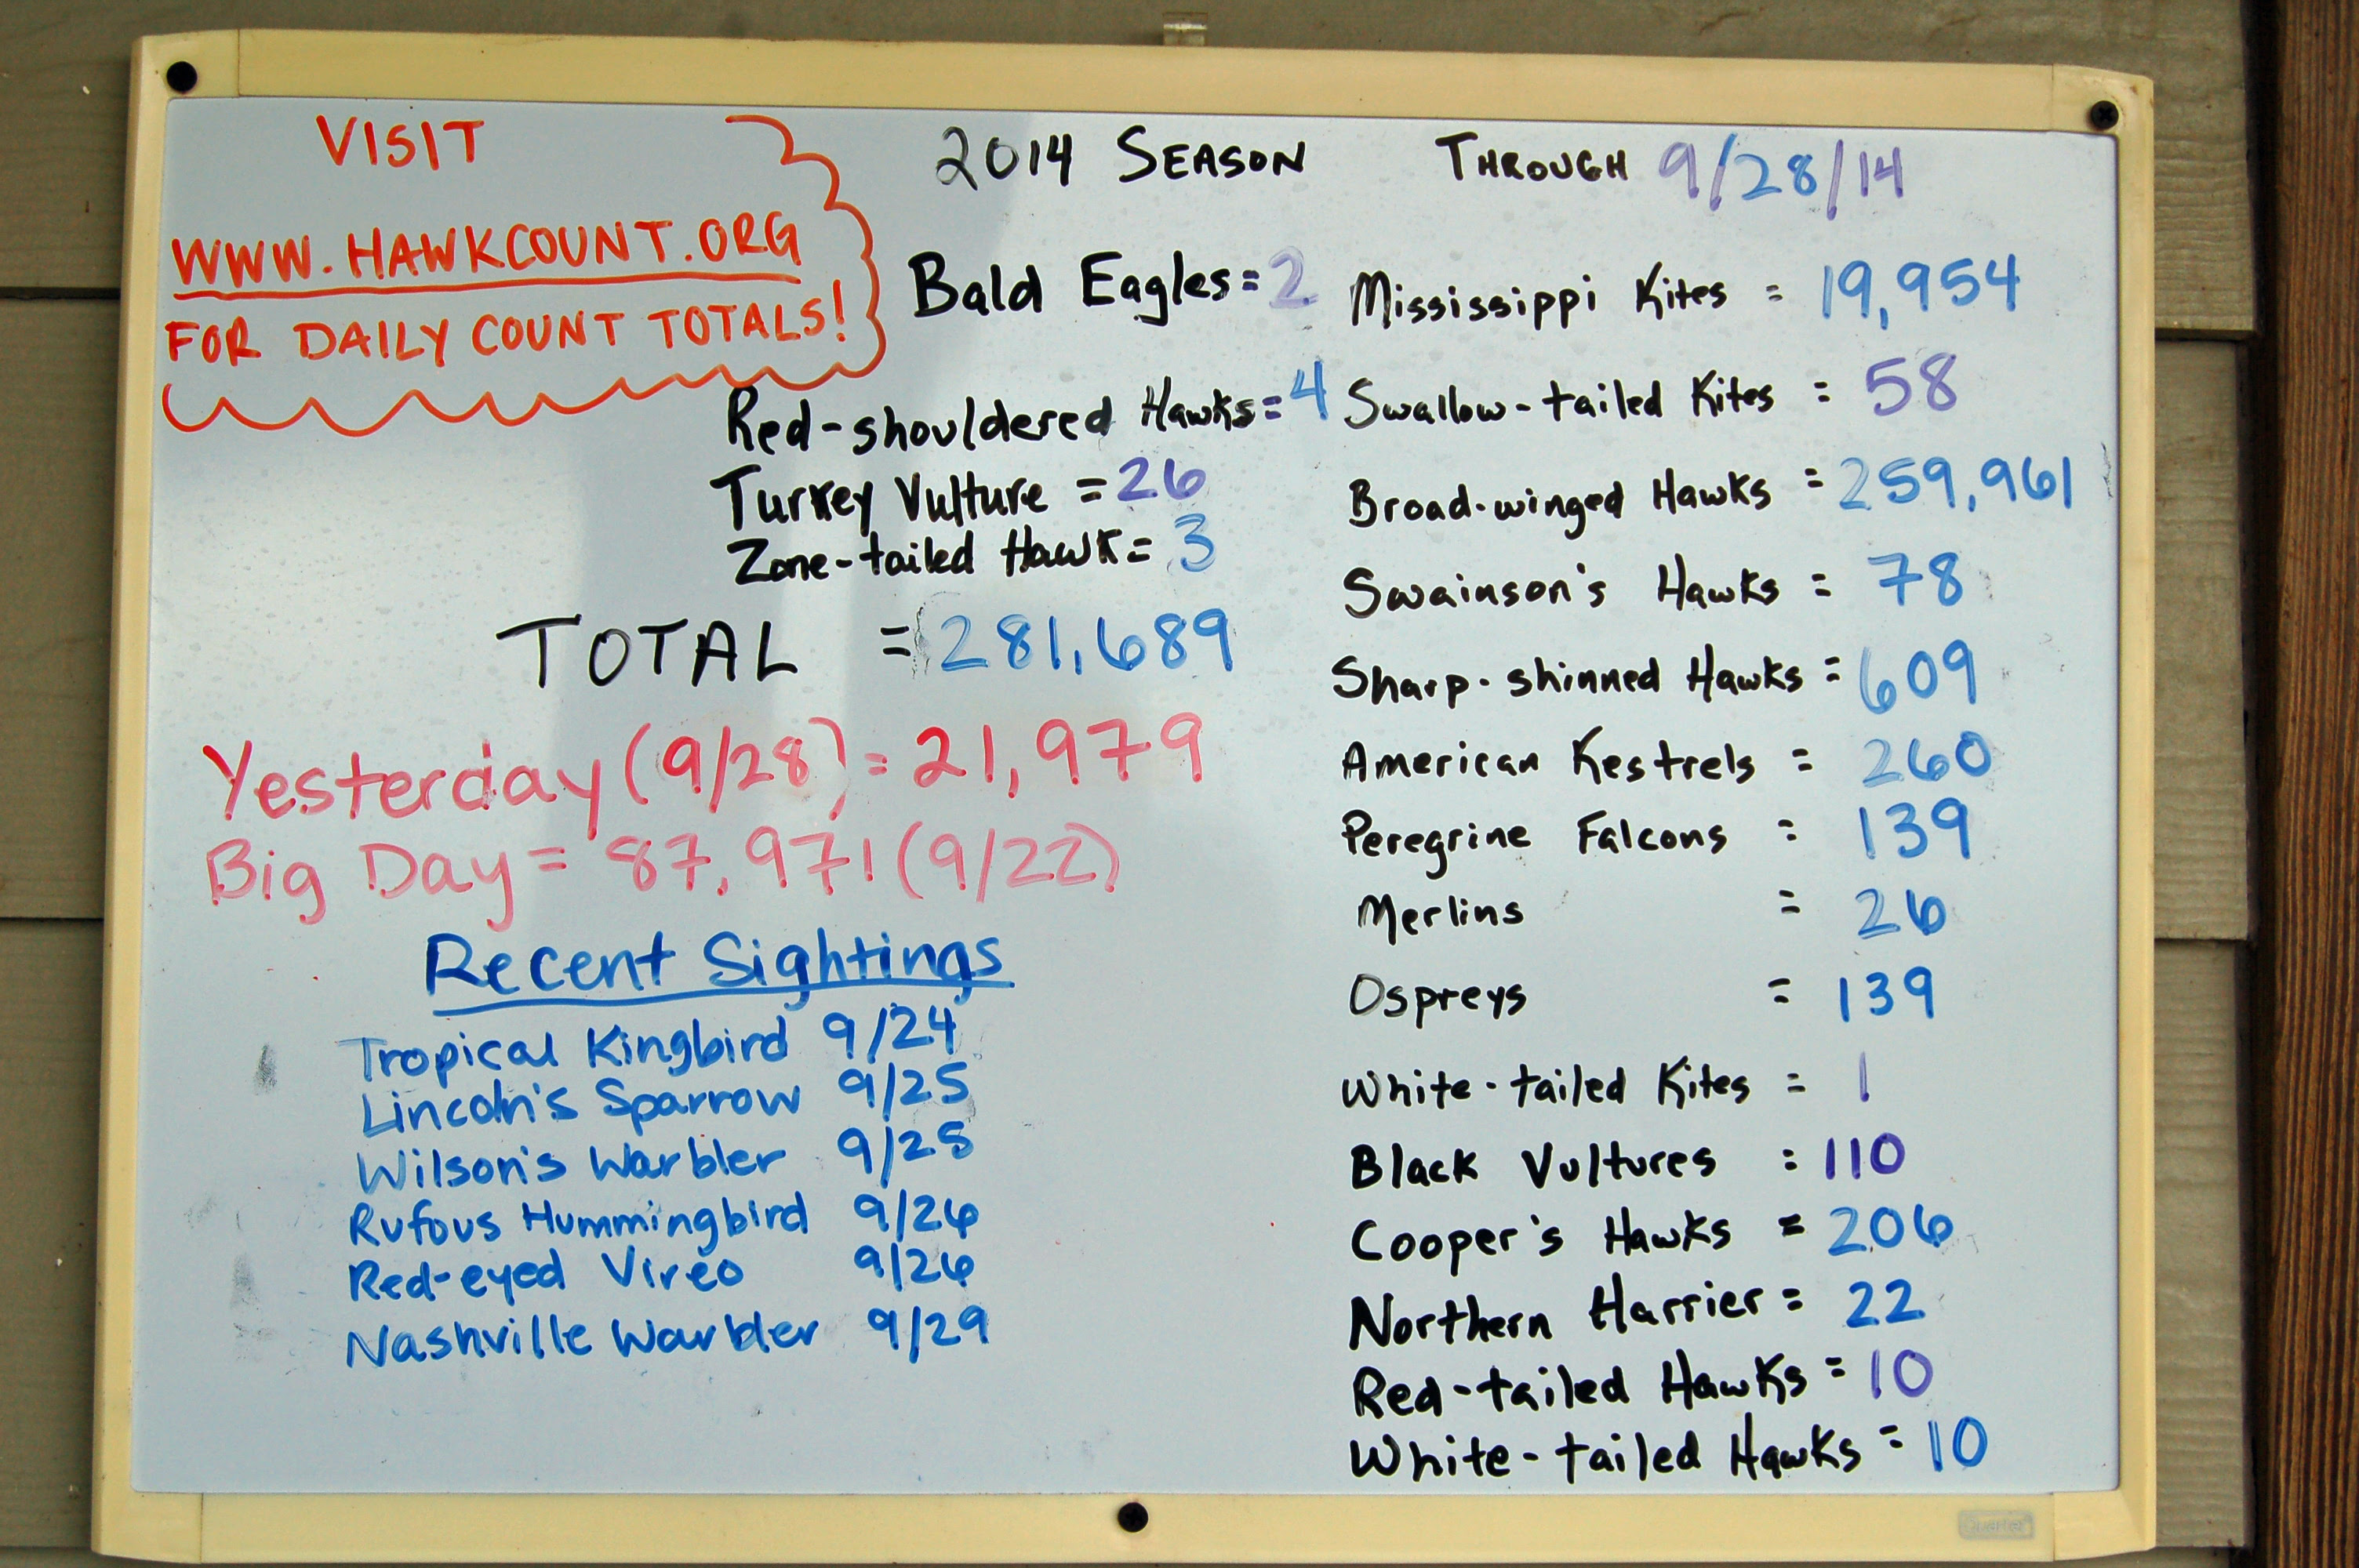 VISIT
WWW.HAWKCOUNT.ORG
FOR DAILY COUNT TOTALS!
2014 SEASON THROUGH 9/28/14
Bald Eagles=2
Red-shouldered Hawks=4
Turkey Vulture =26
Zone-tailed Hawk= 3
TOTAL = 281,689
Yesterday (9/28)= 21,979
Big Day = 87,971 (9/22)
Recent Sightings
Tropical Kingbird 9/24
Lincoln's Sparrow 9/25
Wilson's Warbler 9/25
Rufous Hummingbird 9/26
Red-eyed Vireo 9/26
Nashville Warbler 9/29
Mississippi Kites = 19,954
Swallow-tailed Kites = 58
Broad-winged Hawks = 259,961
Swainson's Hawks = 78
Sharp-shinned Hawks = 609
American Kestrels = 260
Peregrine Falcons = 139
Merlins = 26
Ospreys = 139
White-tailed Kites = 1
Black Vultures = 110
Cooper's Hawks = 206
Northern Harrier = 22
Red-tailed Hawks = 10
White-tailed Hawks = 10